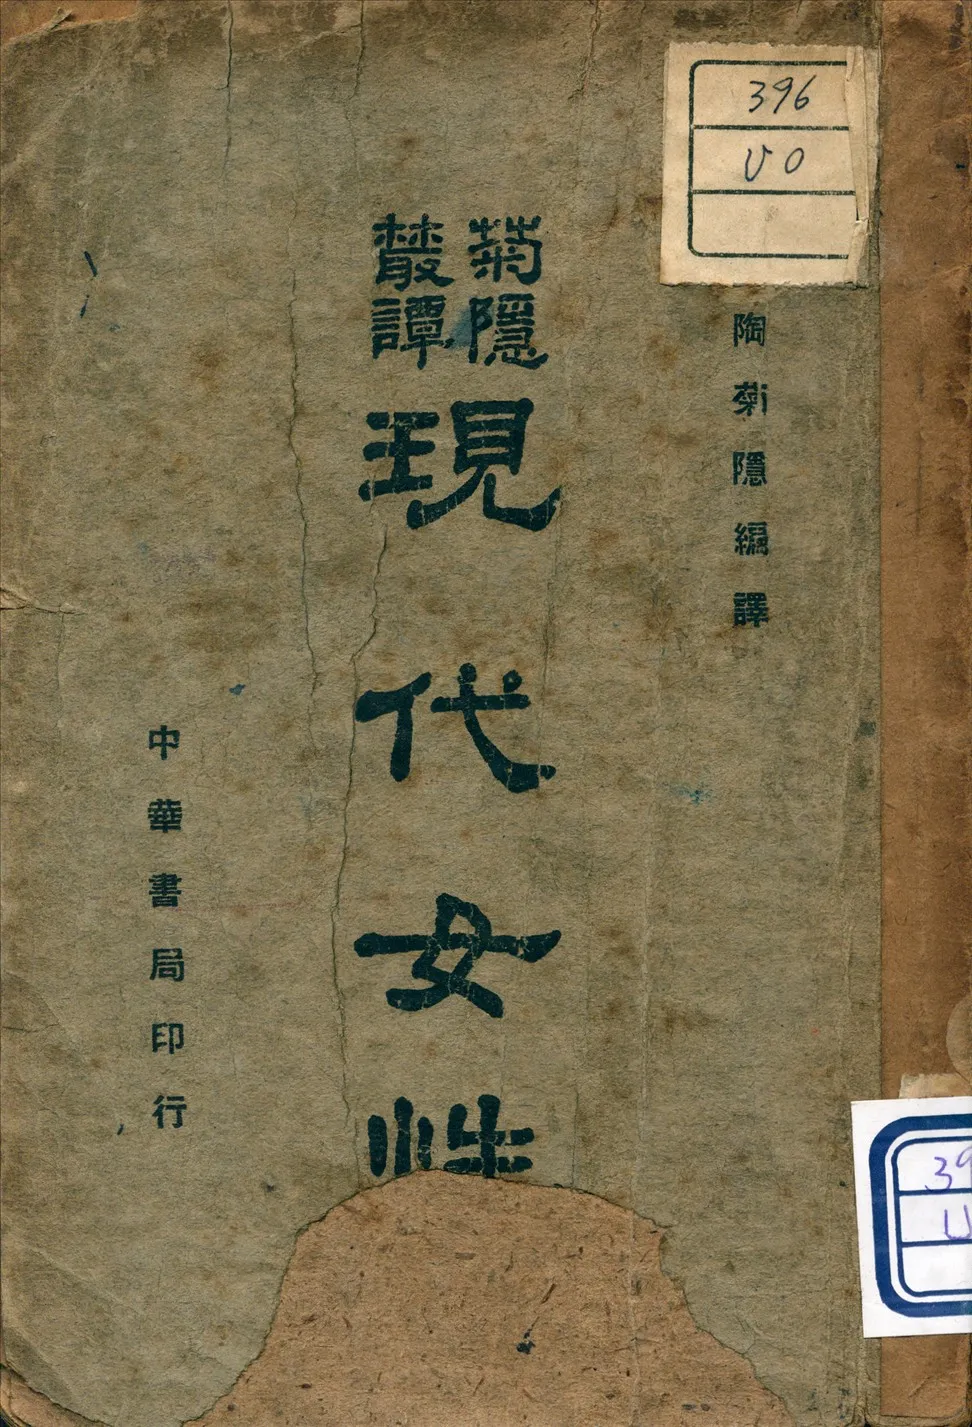 396
UO
陶菊隱編譯
菊隱
叢譚
現代女性
中華書局印行
39
U